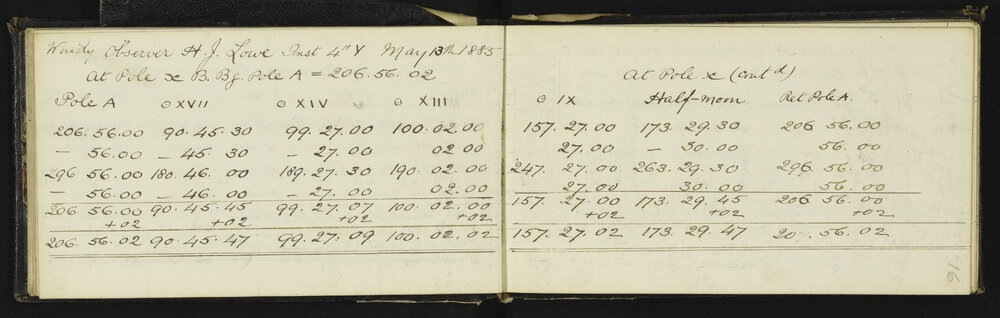 Windy Observer H. J. Lowe Inst 4" Y May 13th 1885
At Pole x B. Bg. Pole A = 206. 56. 02
Pole A ⊙ XVII ⊙ XIV ⊙ XIII
206. 56.00 90. 45. 30 99. 27. 00 100. 02. 00
— 56.00 — 45. 30 — 27. 00 02. 00
296 56.00 180. 46. 00 189. 27. 30 190. 02. 00
— 56.00 — 46. 00 — 27. 00 02. 00
206. 56.00 90. 45. 45 99. 27. 07 100. 02. 00
+02 +02 +02 +02
206. 56. 02 90. 45. 47 99. 27. 09 100. 02. 02
At Pole x (cont'd)
⊙ IX Half-moon Ret Pole A.
157. 27. 00 173. 29. 30 206 56. 00
27. 00 — 30. 00 56. 00
247. 27. 00 263. 29. 30 296. 56. 00
27. 00 30. 00 56. 00
157. 27. 00 173. 29. 45 206 56. 00
+02 +02 +02
157. 27. 02 173. 29. 47 20 . 56. 02
16